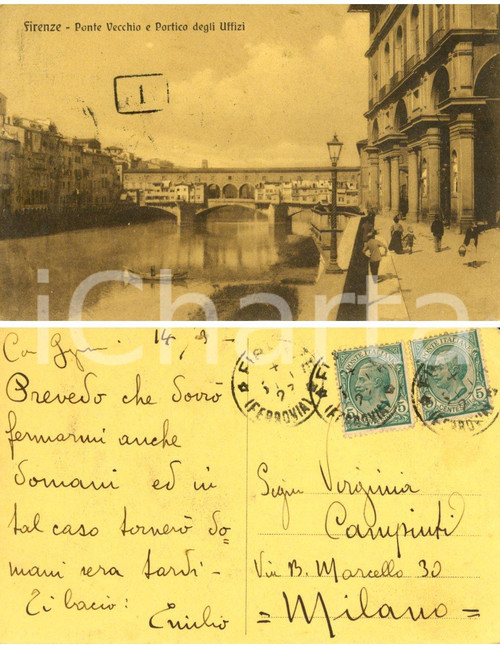 Firenze - Ponte Vecchio e Portico degli Uffizi
1
iCharta
14/9 -
Prevedo che dovrò
fermarmi anche
domani ed in
tal caso tornerò do=
mani sera tardi -
Ti bacio:
Emilio
FIRENZE
(FERROVIA)
POSTE ITALIANE
5
POSTE ITALIANE
5
Virginia
Campinti
Via B. Marcello 30
= Milano =